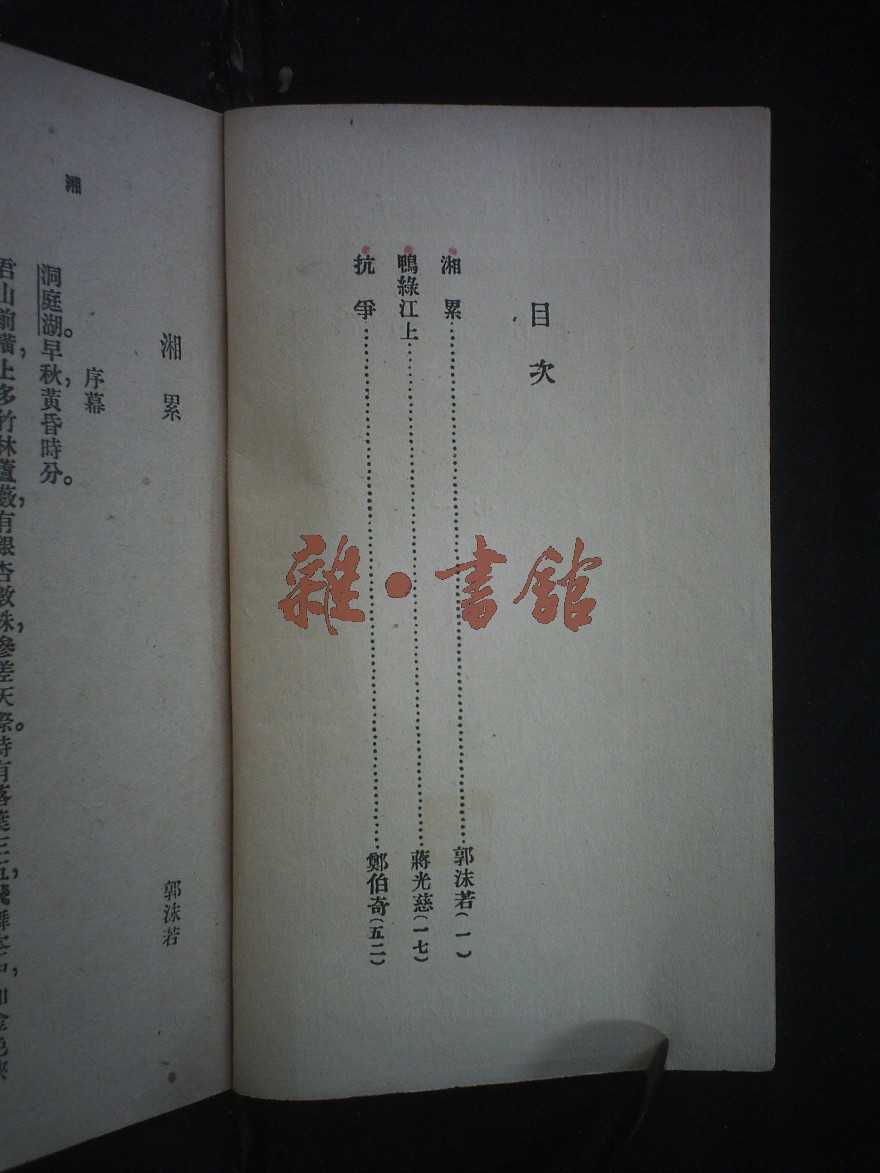 目次
湘累……郭沫若(一)
鴨綠江上……蔣光慈(一七)
抗爭……鄭伯奇(五二)
雜·書館
湘累
郭沫若
序幕
洞庭湖。早秋,黃昏時分。
君山前橫,上多竹林蘆藪,有銀杏數株,參差天際。時有落葉三五,飛舞空中,如金色
湘